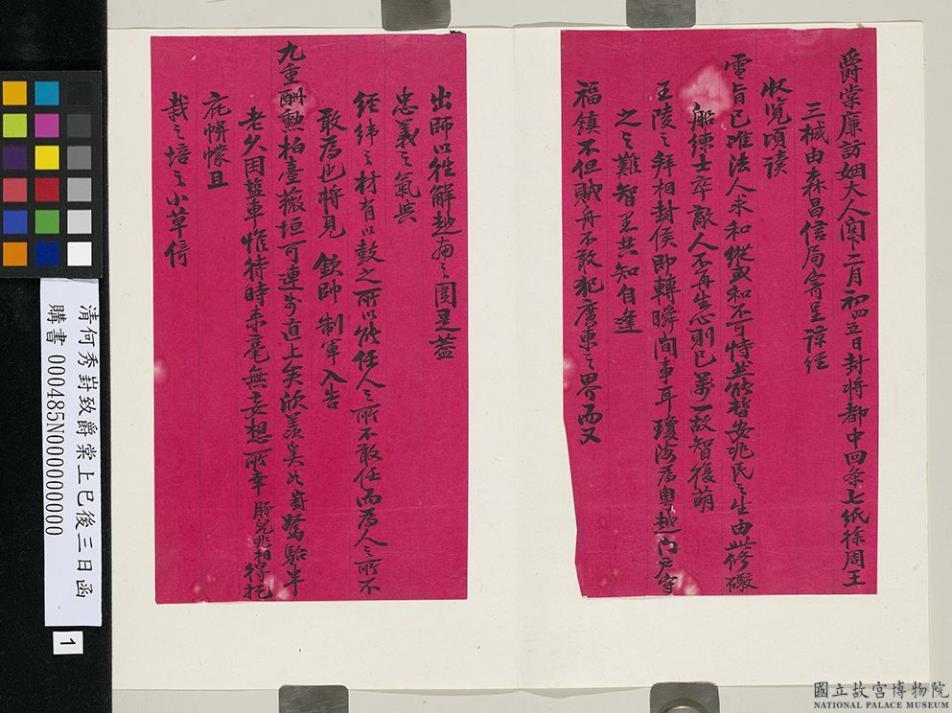 爵棠廉訪姻大人閣下二月初四五日封將都中回条七紙徐周王
三械由森昌信局寄呈諒經
收覽頃讀
電旨已准法人求和縱或和不可恃然能暫安兆民之生由此修礮
船練士卒敵人不再生心則已萬一故智復萌
王陵之拜相封侯即轉瞬間事耳瓊海為粵越門戶守
之之難智愚共知自逢
福鎮不但賊舟不敢犯廣東之界而又
出師以往解越南之圍是蓋
忠義之氣與
經緯之材有以鼓之所以能任人之所不敢任而為人之所不
敢為也將見 欽帥制軍入告
九重酬勳柏臺薇垣可連步直上矣欣羨奚如嵵駑駘半
老久困鹽車惟待時來毫無妄想所幸豚兒兆相得托
庇帡幪且
栽之培之小草倚
清何秀嵵致爵棠上巳後三日函
購書 000485N000000000
1
國立故宮博物院
NATIONAL PALACE MUSEUM